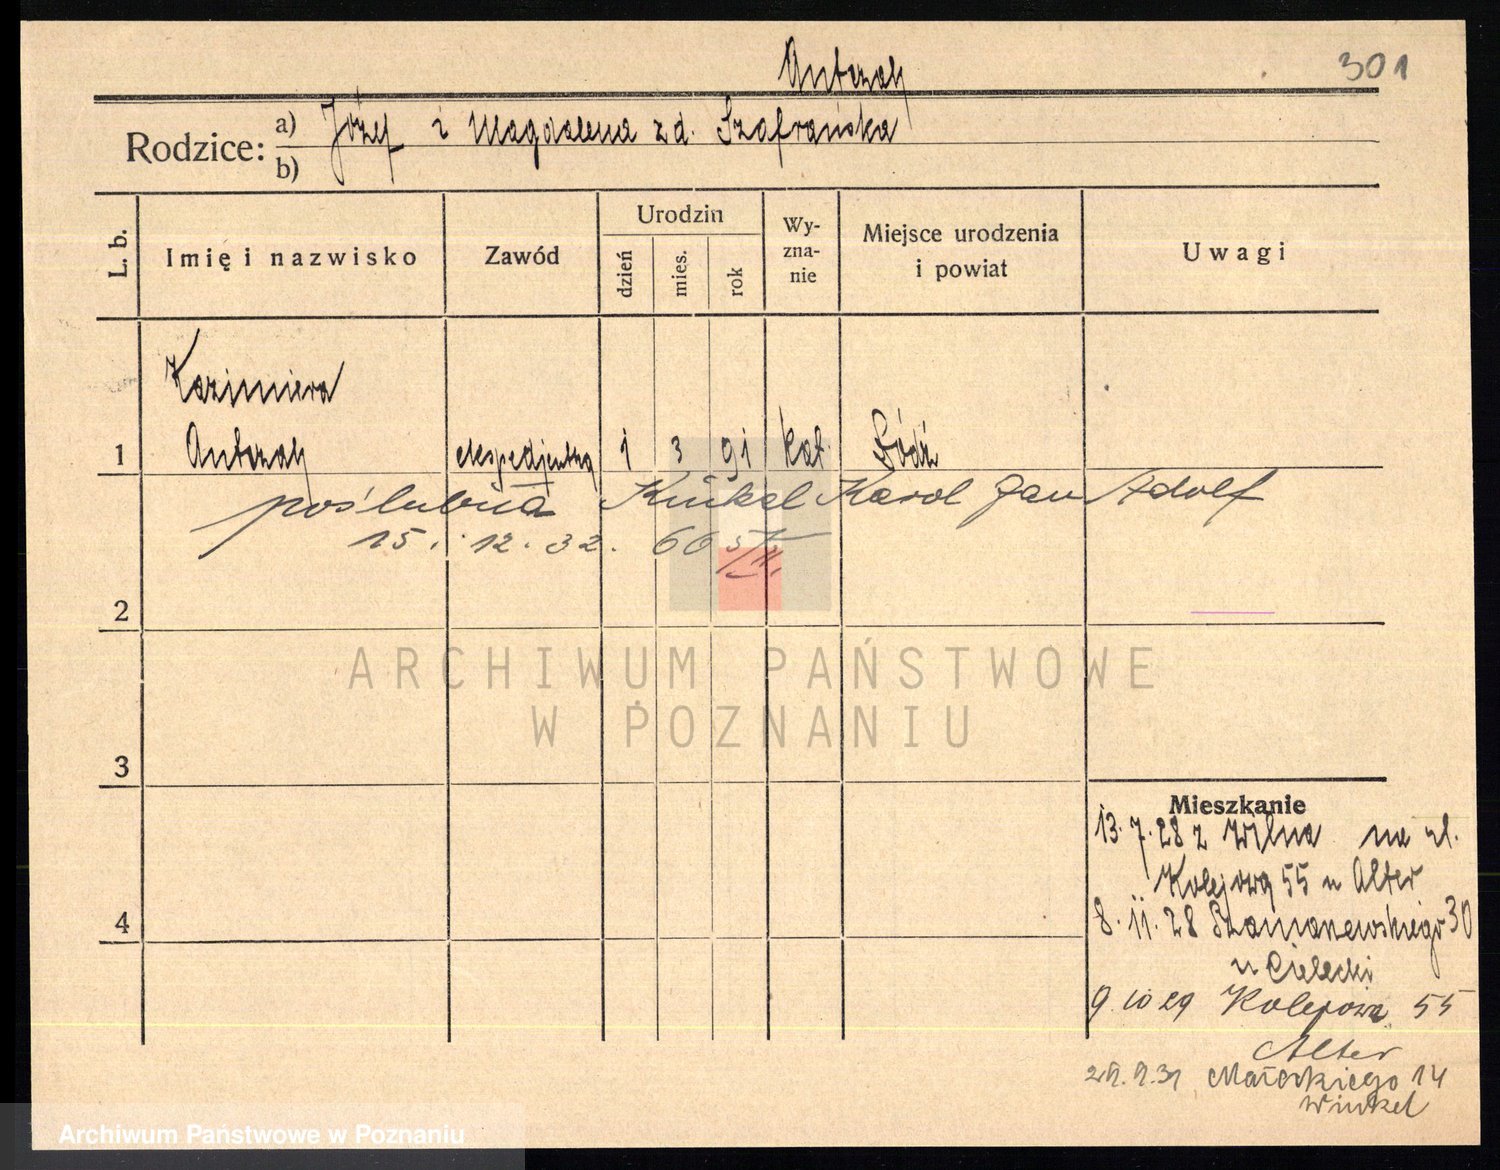 Antczak
301
Rodzice: a) Józef i Magdalena zd. Szafrańska
b)
L. b.
Imię i nazwisko
Zawód
Urodzin
dzień
mies.
rok
Wy-
zna-
nie
Miejsce urodzenia
i powiat
Uwagi
Kazimiera
1 Antczak ekspedjentka 1 3 91 kat. Łódź
poślubiła Kinkel Karol Jan Adolf
15. 12. 32.
2
ARCHIWUM PAŃSTWOWE
W POZNANIU
3
4
Mieszkanie
13.7.28 z Wilna na ul.
Kolejową 55 u Alter
8.11.28 Szamarzewskiego 30
u Cielecki
9.10 29 Kolejowa 55
Alter
Małeckiego 14
Winkel
Archiwum Państwowe w Poznaniu